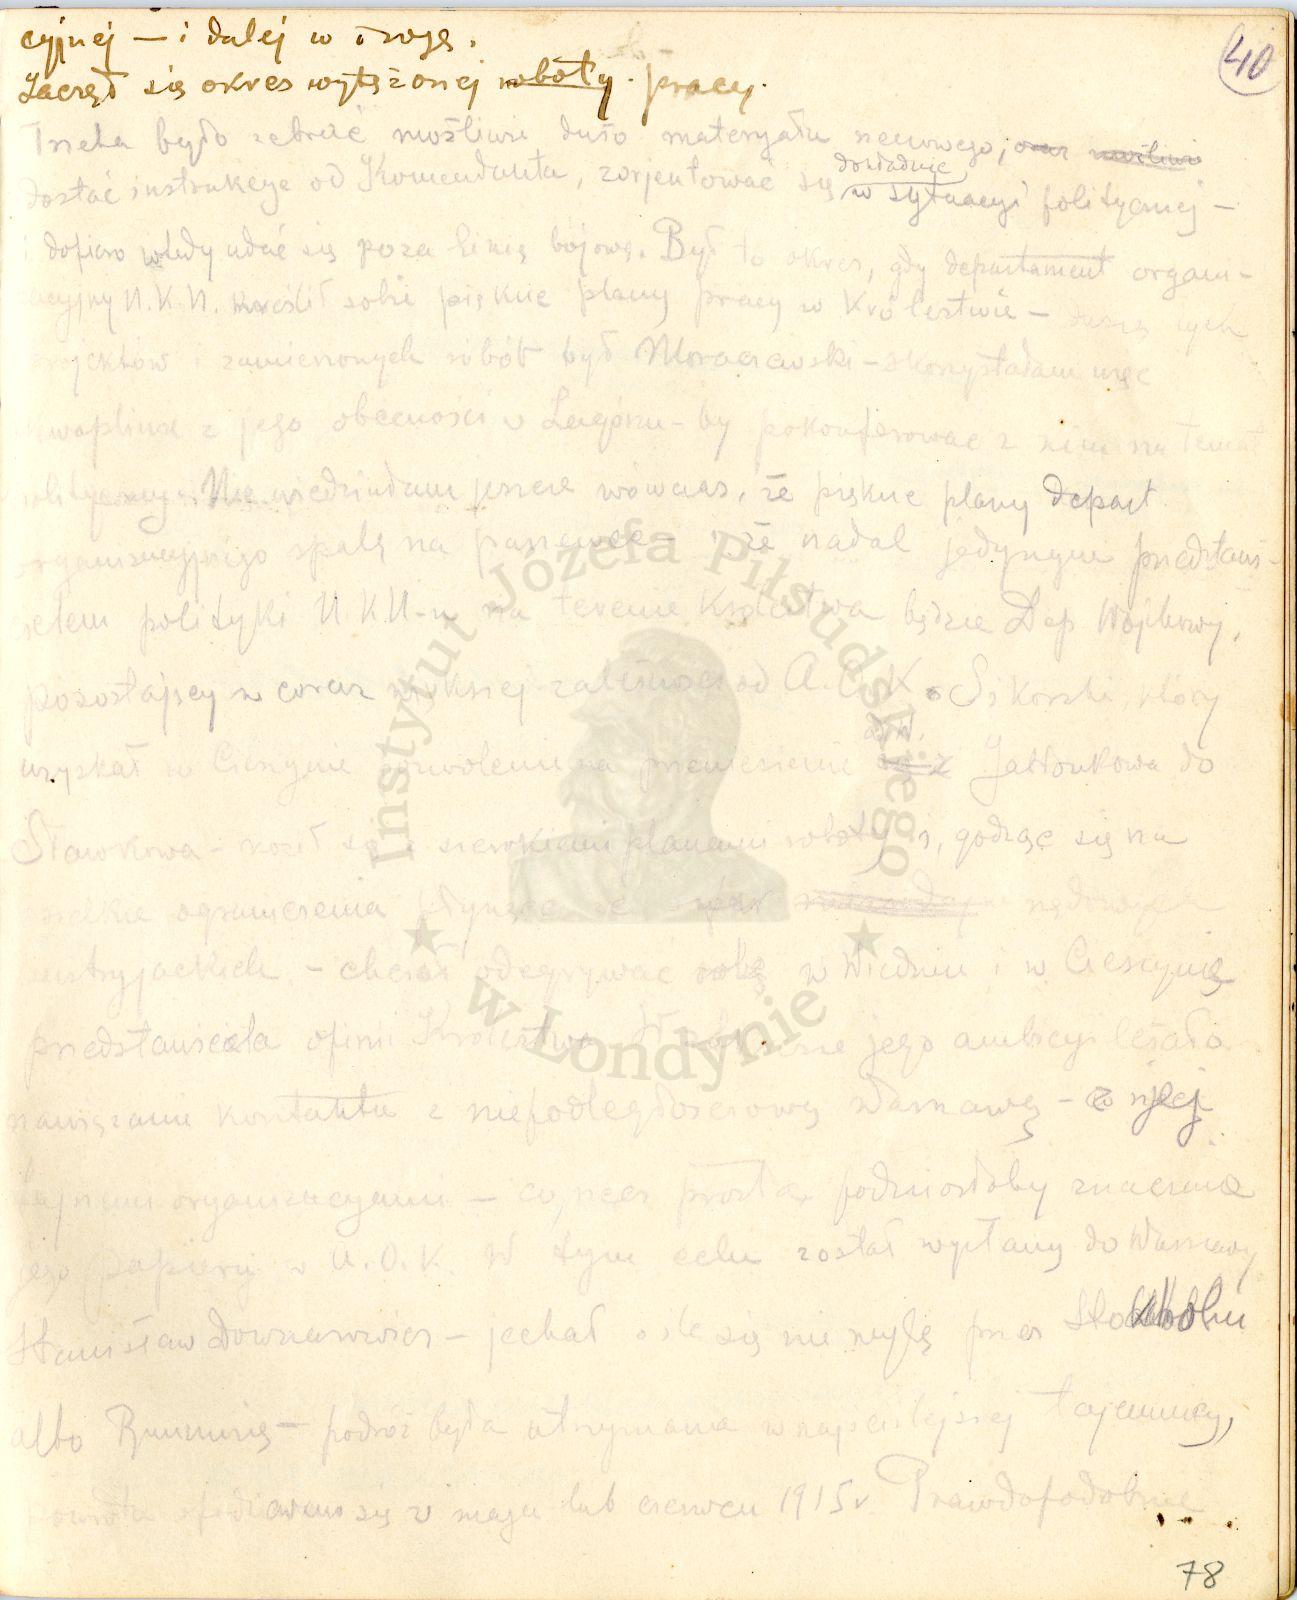 40
cyjnej — i dalej w drogę.
Zaczął się okres wytężonej roboty. pracy.
Trzeba było zebrać możliwie dużo materyału rzeczowego, oraz możliwie
dostać instrukcye od Komendanta, zorjentować się dokładnie w sytuacyi politycznej —
i dopiero wtedy udać się poza linię bojową. Był to okres, gdy departament organi-
zacyjny N.K.N. kreślił sobie piękne plany pracy w Królestwie — duszą tych
projektów i zamierzonych robót był Moraczewski — skorzystałam więc
skwapliwie z jego obecności w Zagórzu — by pokonferować z nim na temat
polityczny. Nie wiedziałam jeszcze wówczas, że piękne plany depart.
organizacyjnego spalą na panewce — i że nadal jedynym przedstawi-
cielem polityki N.K.N-u na terenie Królestwa będzie Dep Wojskowy,
pozostający w coraz większej zależności od A.O.K. Sikorski, który
uzyskał w Cieszynie pozwolenie na przeniesienie z Jabłonkowa do
Sławkowa — nosił się z szerokimi planami roboty i, godząc się na
wszelkie ograniczenia płynące ze sfer rządowych
austryjackich — chciał odegrywać rolę w Wiedniu i w Cieszynie
przedstawiciela opinii Królestwa. W jego ambicyi leżało
nawiązanie kontaktu z niepodległościową Warszawą — z jej
tajnemi organizacyami — co, rzecz prosta, podniosłoby znacznie
jego papiery w A.O.K. W tym celu został wysłany do Warszawy
Stanisław Downarowicz — jechał o ile się nie mylę przez Stokholm
albo Rumunię — podróż była utrzymana w najściślejszej tajemnicy,
powrotu spodziewano się w maju lub czerwcu 1915 r. Prawdopodobnie
78
Instytut Józefa Piłsudskiego
w Londynie